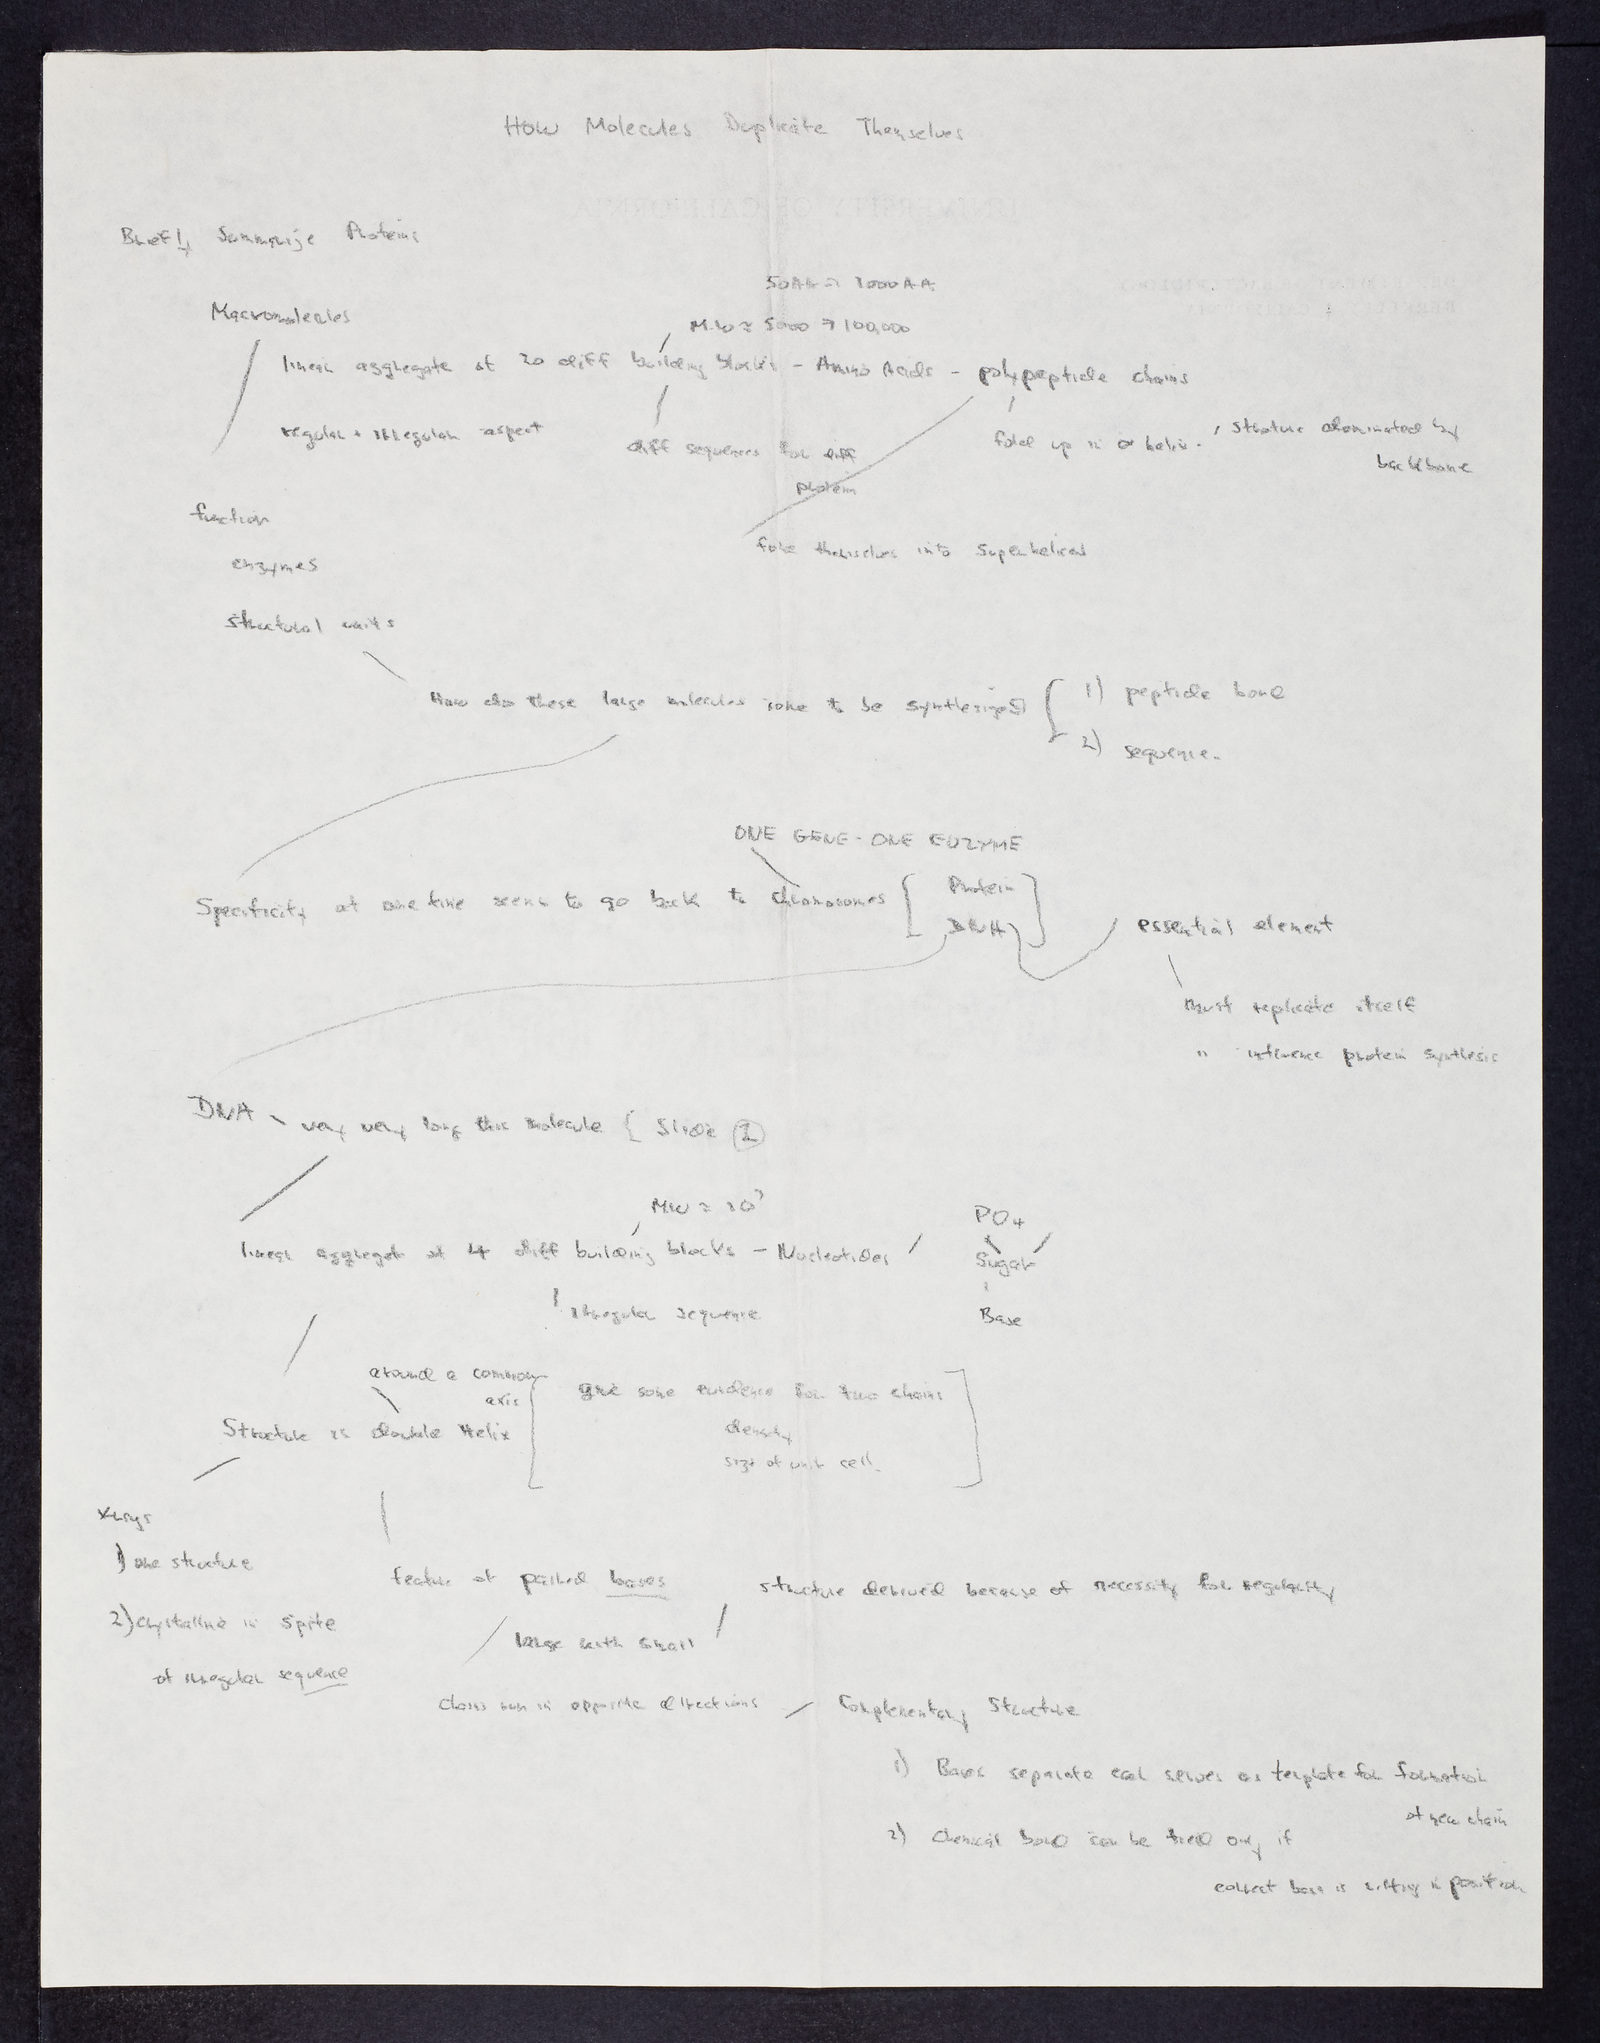 How Molecules Duplicate Themselves
Briefly Summarize Proteins
50AA → 1000AA
Macromolecules
M.W ≈ 5000 → 100,000
linear aggregate of 20 diff building blocks - Amino Acids - polypeptide chains
regular + irregular aspect
diff sequences for diff
protein
fold up in α helix.
structure dominated by
backbone
function
fold themselves into superhelices
enzymes
structural units
How do these large molecules come to be synthesized { 1) peptide bond
2) sequence.
ONE GENE-ONE ENZYME
Specificity at one time seems to go back to chromosomes [ Protein ]
DNA
essential element
must replicate itself
" influence protein synthesis
DNA - very very long thin molecule { Slide 1
MW ≈ 10⁷
PO4
linear aggregate of 4 diff building blocks - Nucleotides
Sugar
irregular sequence
Base
around a common
axis
give some evidence for two chains
density
Structure is double Helix
size of unit cell.
X-rays
1) one structure
feature of paired bases
structure derived because of necessity for regularity
2) crystalline in spite
large with small
of irregular sequence
chains run in opposite directions
Complementary Structure
1) Bases separate each serves as template for formation
of new chain
2) chemical bond can be tied only if
correct base is sitting in position